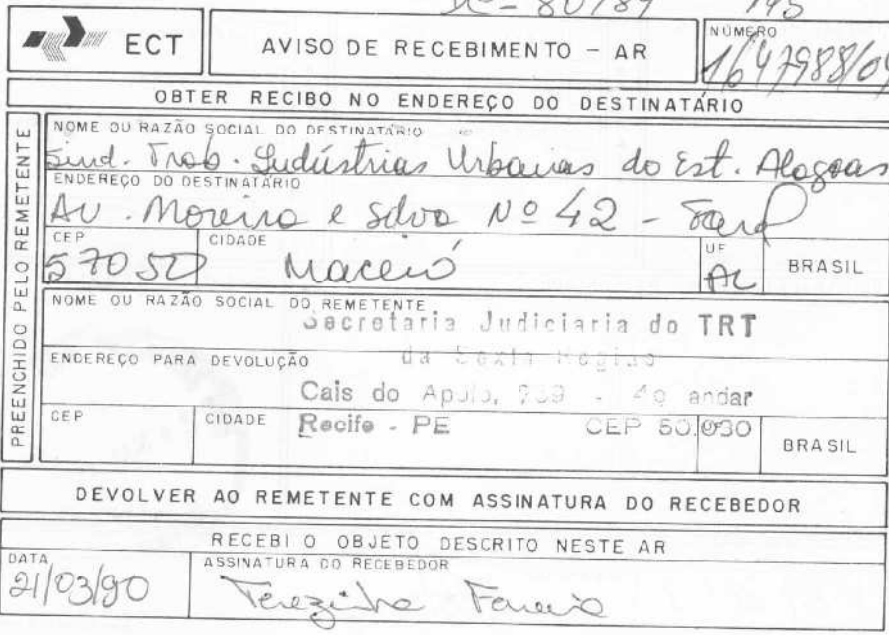 DC - 80/89 145
ECT AVISO DE RECEBIMENTO - AR
NÚMERO
1647988/04
OBTER RECIBO NO ENDEREÇO DO DESTINATÁRIO
PREENCHIDO PELO REMETENTE
NOME OU RAZÃO SOCIAL DO DESTINATÁRIO
Sind. Trab. Indústrias Urbanas do Est. Alagoas
ENDEREÇO DO DESTINATÁRIO
Av. Moreira e Silva Nº 42 - Farol
CEP CIDADE UF
57050 Maceió AL BRASIL
NOME OU RAZÃO SOCIAL DO REMETENTE
Secretaria Judiciaria do TRT
da Sexta Região
ENDEREÇO PARA DEVOLUÇÃO
Cais do Apolo, 739 - 4º andar
CEP CIDADE Recife - PE CEP 50.030
BRASIL
DEVOLVER AO REMETENTE COM ASSINATURA DO RECEBEDOR
RECEBI O OBJETO DESCRITO NESTE AR
DATA ASSINATURA DO RECEBEDOR
21/03/90 Terezinha